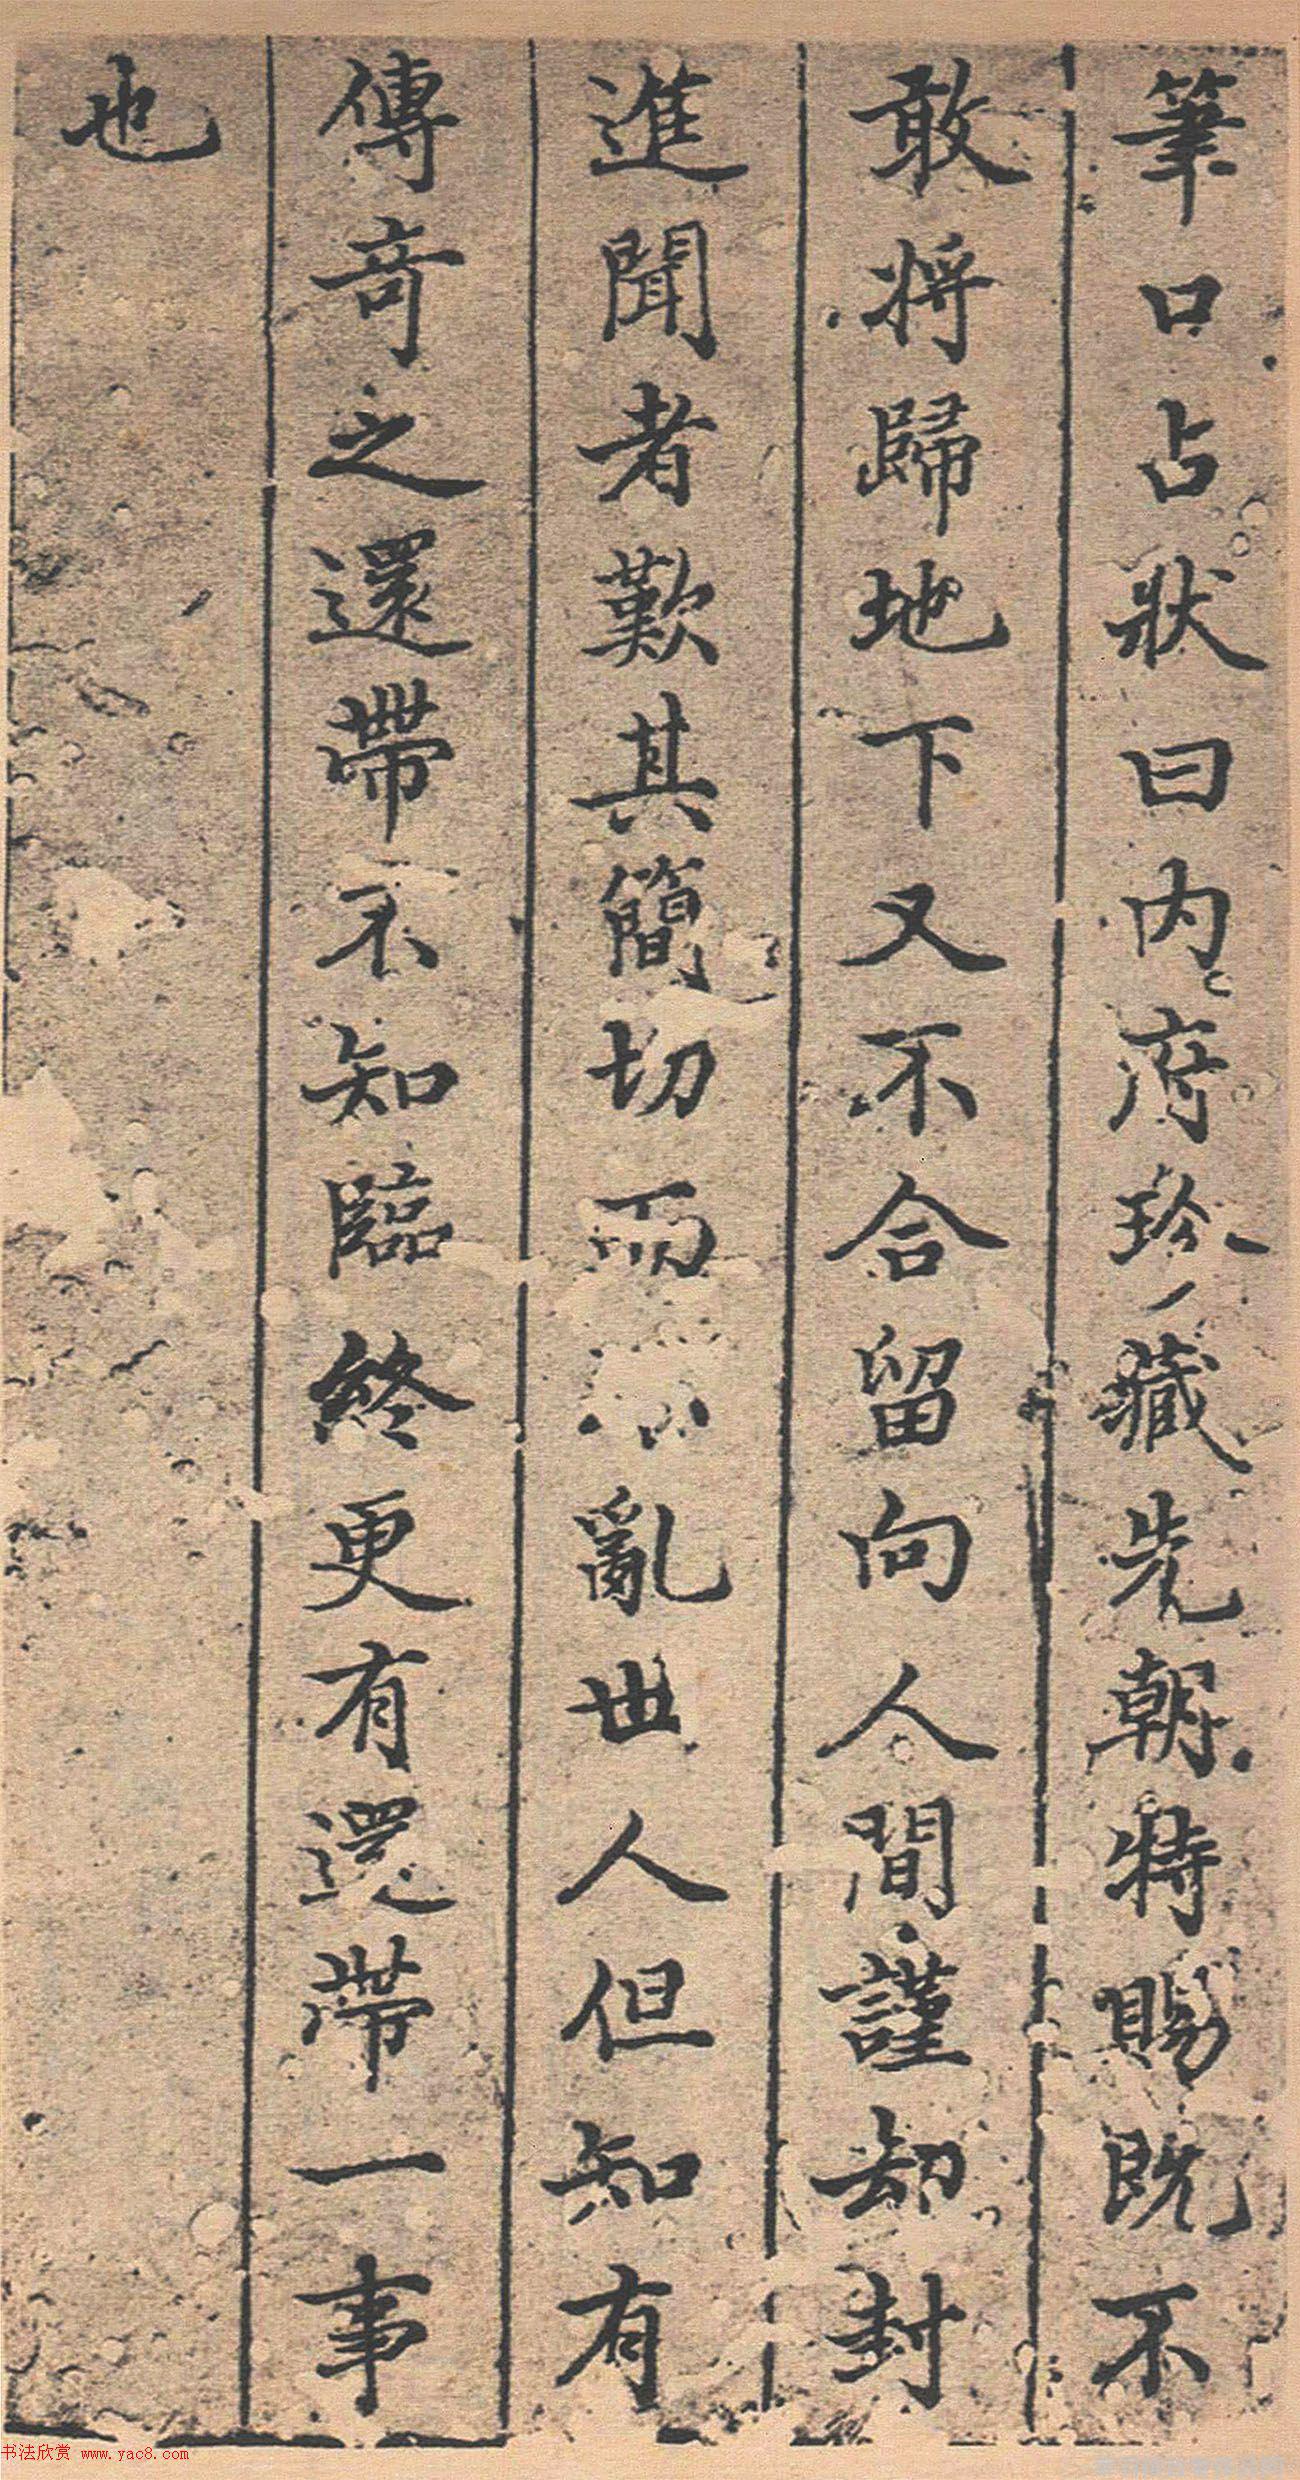 筆口占狀曰內府珍藏先朝特賜既不
敢將歸地下又不合留向人間謹却封
進聞者歎其簡切而不亂世人但知有
傳奇之還帶不知臨終更有還帶一事
也
书法欣赏 www.yac8.com